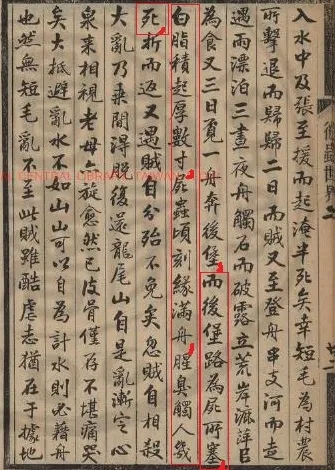 入水中及張至援而起淹半死矣幸短毛為村農
所擊退而歸歸二日而賊又至登舟串支河而走
遇雨漂泊三晝夜舟觸石而破露立荒岸
為食又三日覓一舟奔後堡而後堡路為屍所塞
白脂積起厚數寸屍蟲頃刻緣滿舟腥臭觸人幾
死折而返又遇賊自分殆不免矣忽賊自相殺
大亂乃乘間得脫復還龍尾山自是亂漸定心
泉來相視老母亦旋愈然已皮骨僅存不堪痛哭
矣大抵避亂水不如山山可以自為計水則必藉舟
也然無短毛亂不至此賊雖酷虐志猶在于據地
AL CENTRAL LIBRARY, TAIWAN